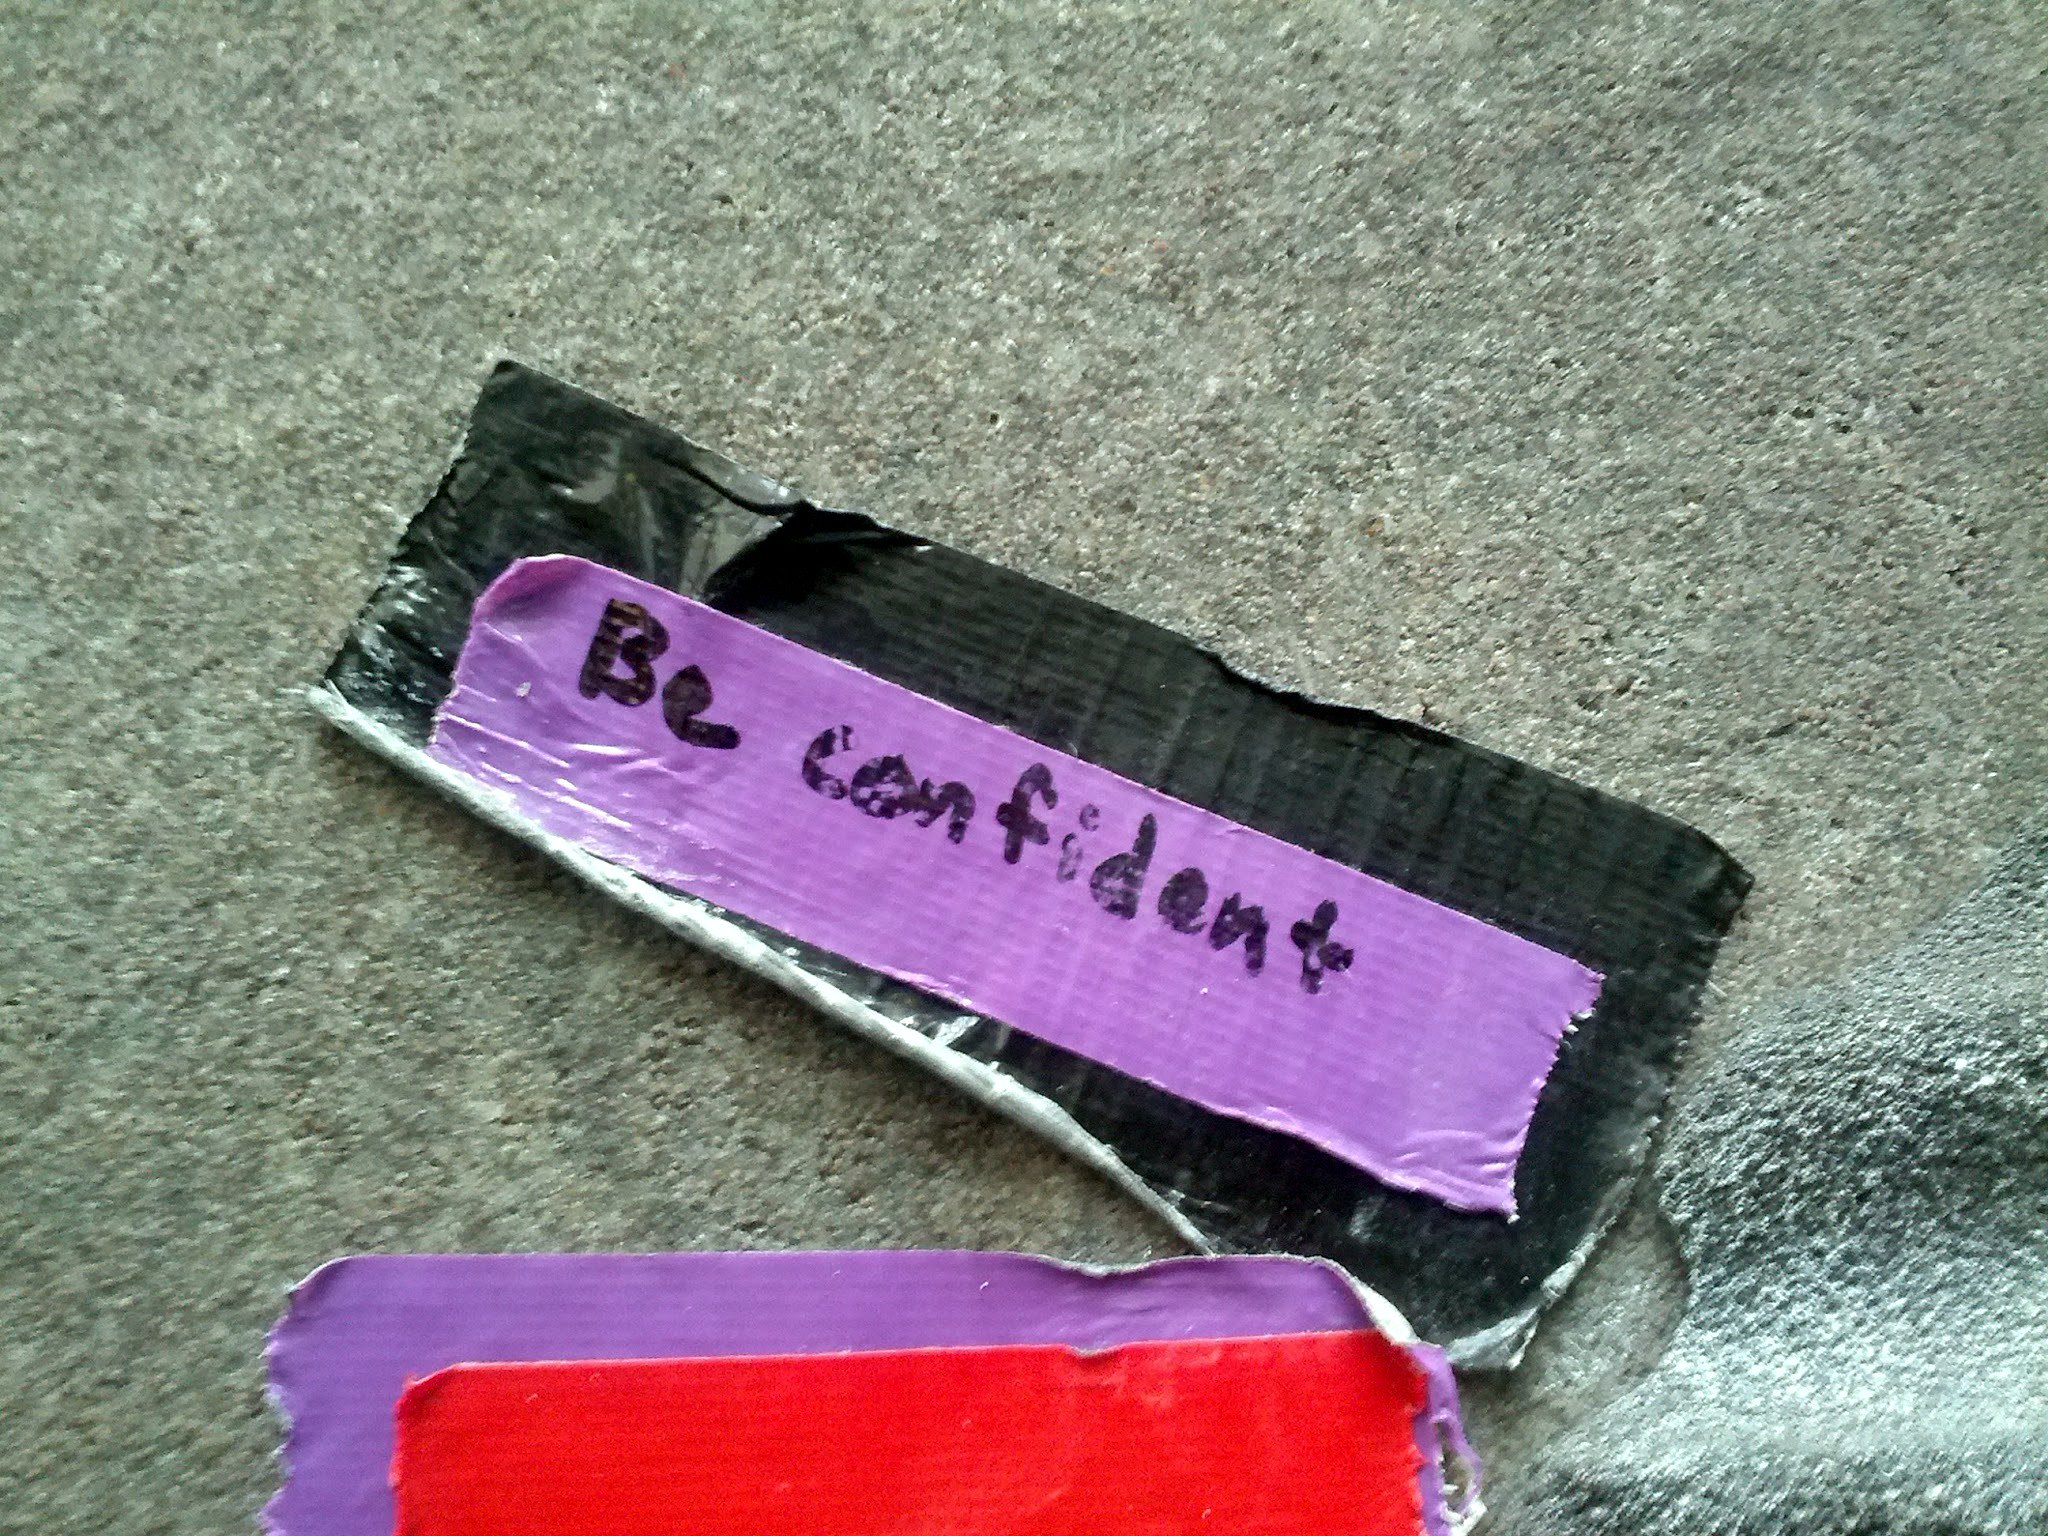 Be confident